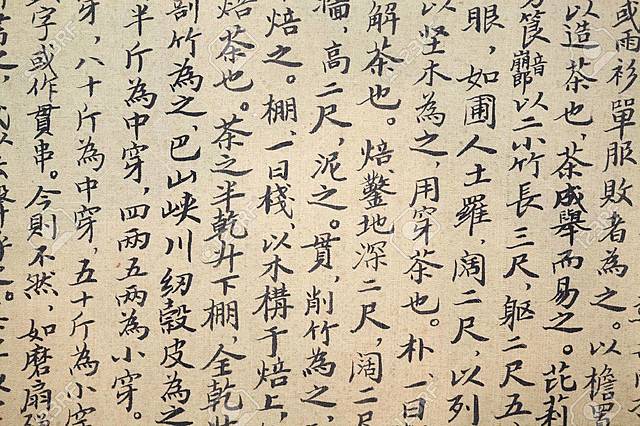 或雨衫單服敗者為之。以檐置
以造茶也，茶成舉而易之。芘莉
筤以二小竹長三尺，軀二尺五
眼，如圃人土羅，闊二尺，以列
以坚木為之，用穿茶也。朴，一曰
解茶也。焙，鑿地深二尺，闊二尺
高二尺，泥之。貫，削竹為之，
焙之。棚，一曰棧，以木構于焙上，
焙茶也。茶之半乾升下棚，全乾
剖竹為之，巴山峽川紉穀皮為之
半斤為中穿，四兩五兩為小穿。
穿，八十斤為中穿，五十斤為小穿
字或作貫串。今則不然，如磨扇彈
123RF